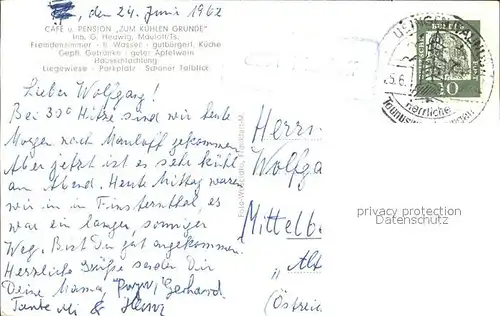 , den 24. Juni 1962
CAFÉ u. PENSION „ZUM KÜHLEN GRUNDE"
Inh. G. Heuwig, Mauloff/Ts.
Fremdenzimmer - fl. Wasser - gutbürgerl. Küche
Gepfl. Getränke - guter Apfelwein
Hausschlachtung
Liegewiese - Parkplatz - Schöner Talblick
Lieber Wolfgang!
Bei 30° Hitze sind wir heute
Morgen nach Mauloff gekommen
Aber jetzt ist es sehr kühl
am Abend. Heute Mittag waren
wir in Finsternthal, es
war ein langer, sonniger
Weg. Bist Du gut angekommen.
Herzliche Grüße senden Dir
Deine Mama, Gerhard
Tante & Heinz
Herrn
Wolfga
Mittelb
„Alt
(Österei
USINGEN
herrliche
10
privacy protection
Datenschutz